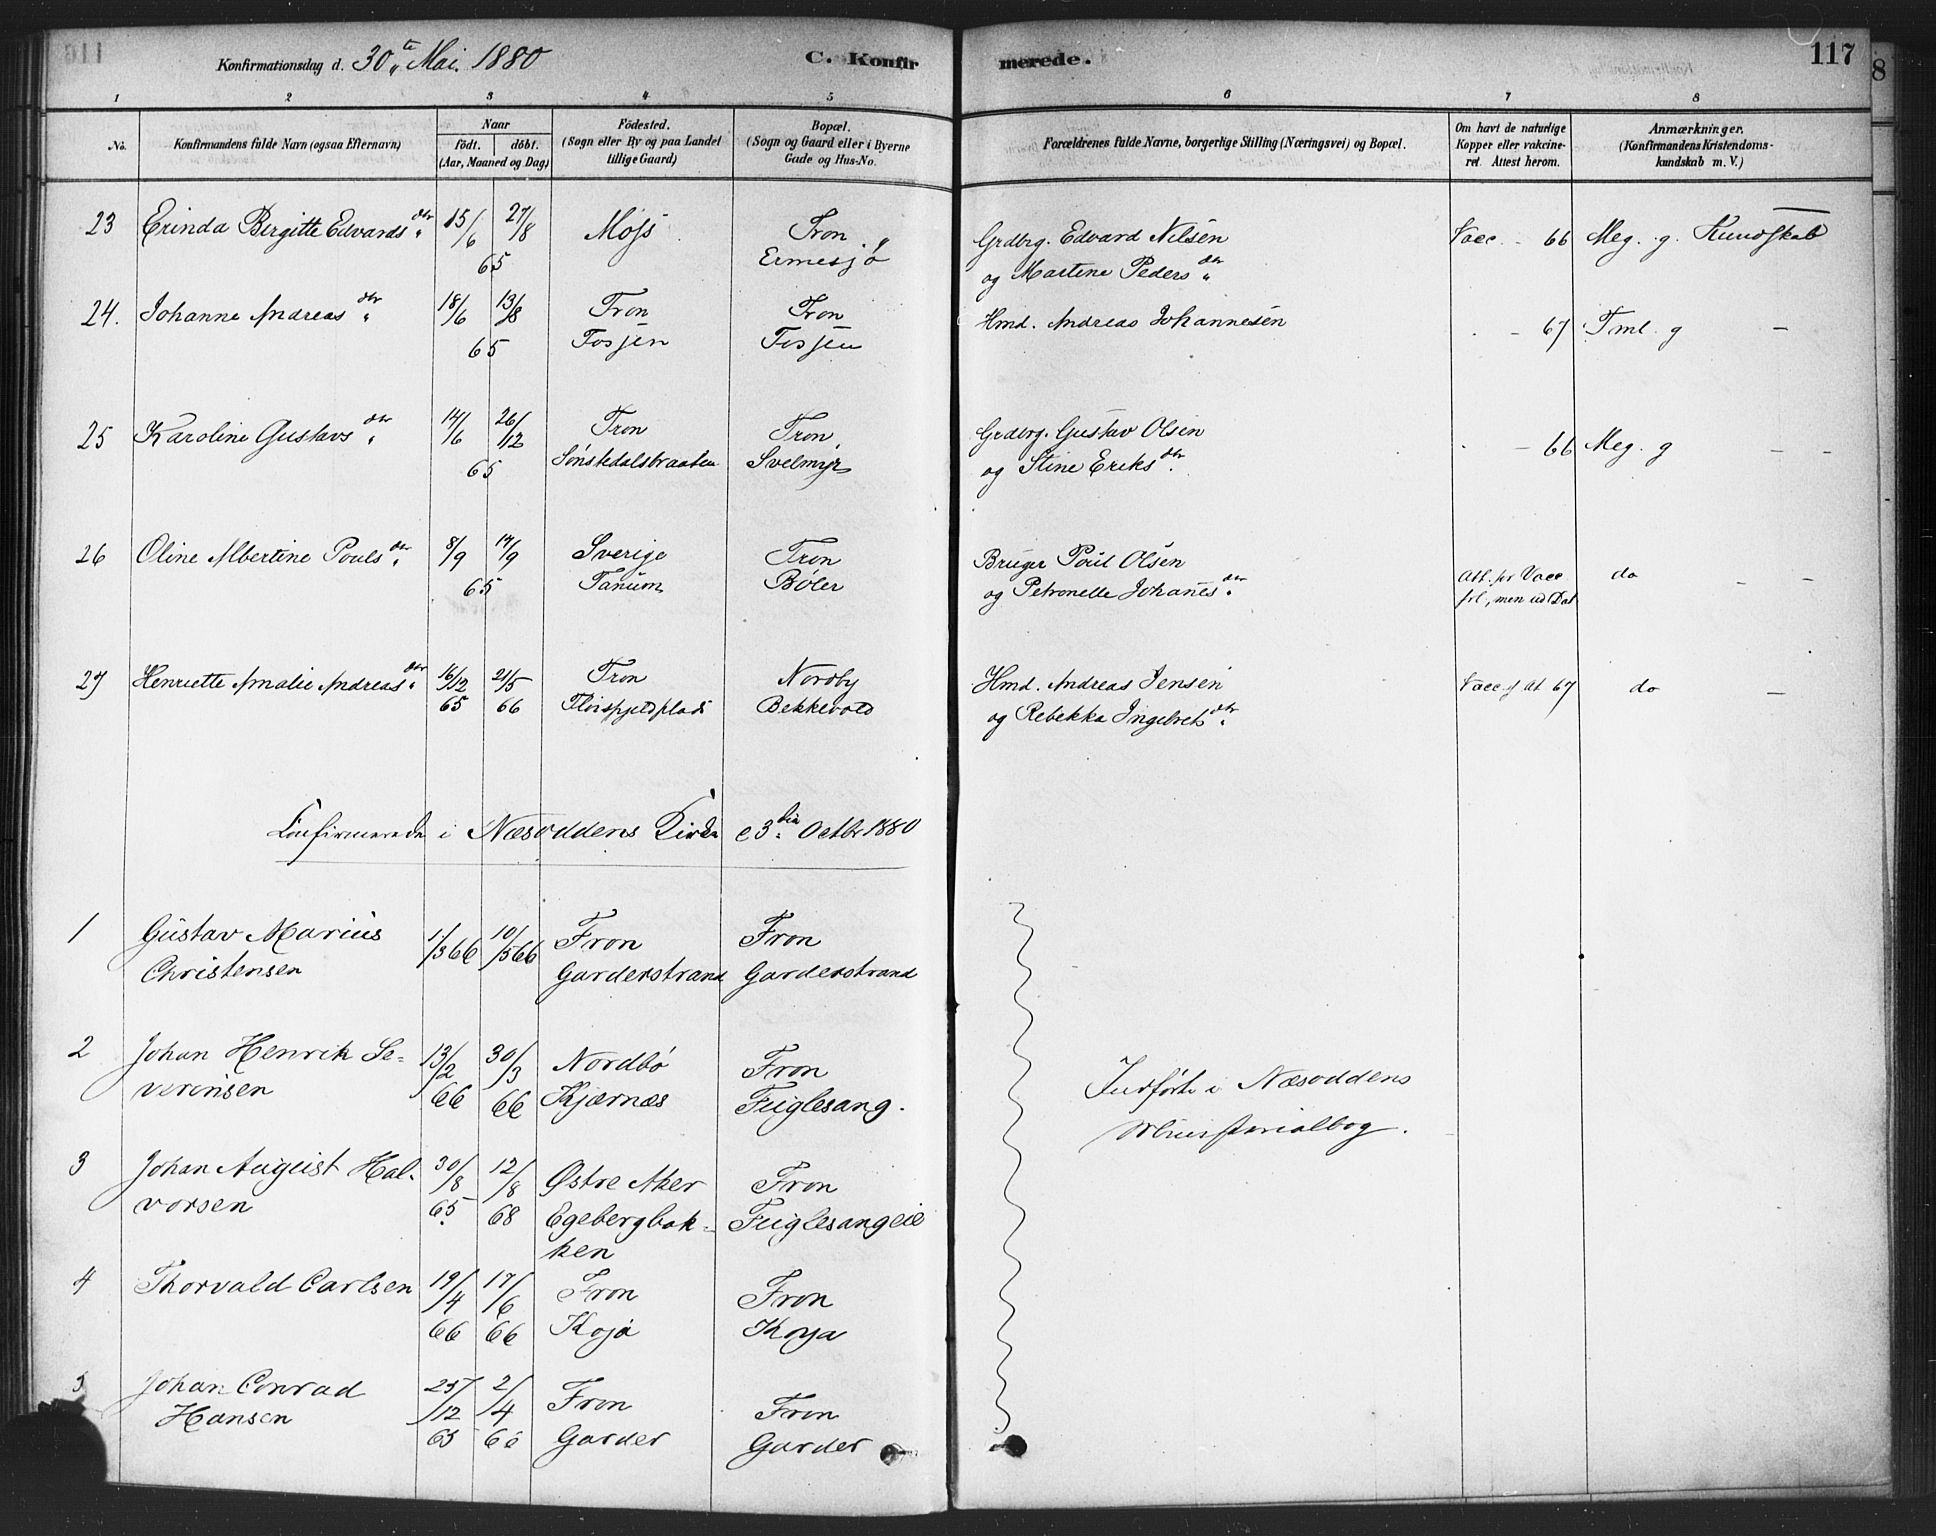 Konfirmationsdag d. 30te Mai 1880
C. Konfirmerede.
117
1 2 3 4 5 6 7 8
No.
Konfirmandens fulde Navn (ogsaa Efternavn)
Naar
födt. döbt.
(Aar, Maaned og Dag)
Födested.
(Sogn eller By og paa Landet
tillige Gaard)
Bopæl.
(Sogn og Gaard eller i Byerne
Gade og Hus-No.
Forældrenes fulde Navne, borgerlige Stilling (Næringsvei) og Bopæl.
Om havt de naturlige
Kopper eller vakcine-
ret. Attest herom.
Anmærkninger.
(Konfirmandens Kristendoms-
kundskab m. V.)
23 Erinda Birgitte Edvardsdtr 15/6 27/8 Moss Fron Grdbrg. Edvard Nilsen Vacc. - 66 Meg. g. Kundskab
65 Ermesjø og Martine Pedersdtr
24. Johanne Andreasdtr 18/6 13/8 Fron Fron Hmd. Andreas Johannesen - 67 Tml. g -
65 Fosjen Fosjen
25 Karoline Gustavsdtr 14/6 26/12 Fron Fron Grdbrg. Gustav Olsen - 66 Meg. g - -
65 Sønstedalsbraaten Svelmyr og Stine Eriksdtr.
26 Oline Albertine Poulsdtr 8/9 14/9 Sverige Fron Bruger Poul Olsen
65 Tanum Bøler og Petronelle Johanesdtr. Att. for Vacc. do - -
frl, men ud Dat
27 Henriette Amalie Andreasdtr 16/12 21/5 Fron Nordby Hmd. Andreas Jensen Vacc. At 67 do -
65 66 Bekkevold og Rebekka Ingebretsdtr.
Confirmerede i Næsoddens Kirke 3die Octbr 1880
1 Gustav Marius 1/3 66 10/5 66 Fron Fron
Christensen Garderstrand Garderstrand
2 Johan Henrik Se- 13/2 30/3 Nordbø Fron
verinsen 66 66 Kjærnæs Fuglesang.
Indførte i Næsoddens
Ministerialbog.
3 Johan August Hal- 30/8 12/8 Østre Aker Fron
vorsen 65 68 Egebergbak- Fuglesangeie
ken
4 Thorvald Carlsen 19/4 17/6 Fron Fron
66 66 Koja Koja
5 Johan Conrad 25/12 2/4 Fron Fron
Hansen 65 66 Garder Garder